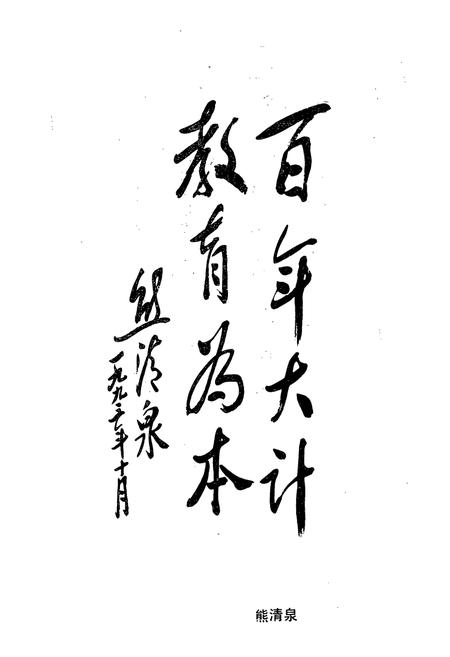 百年大计
教育为本
熊清泉
一九九三年十月
熊清泉